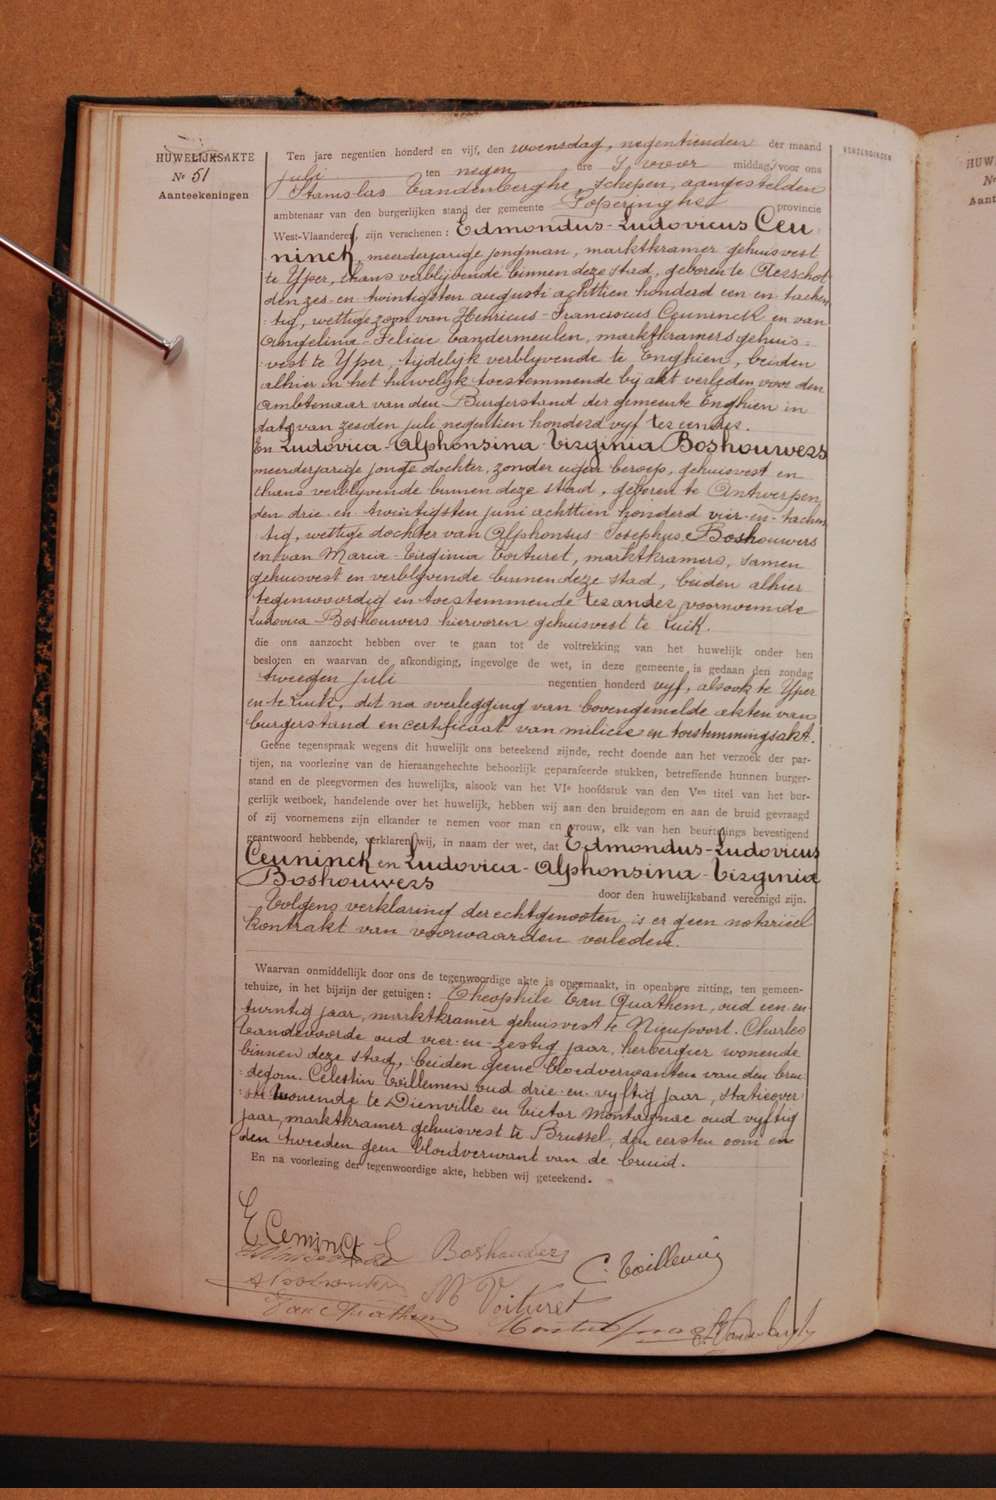 HUWELIJKSAKTE
Nr 51
Aanteekeningen
Ten jare negentien honderd en vijf, den woensdag, negentienden der maand
juli ten negen ure voor middag, voor ons
Stanislas Vandenberghe, Schepen, aangestelden
ambtenaar van den burgerlijken stand der gemeente Poperinghe provincie
West-Vlaanderen, zijn verschenen: Edmondus-Ludovicus Ceu
ninck, meerderjarige jongman, marktkramer gehuisvest
te Yper, thans verblijvende binnen deze stad, geboren te Aerschot
den zes-en-twintigsten augusti achttien honderd een-en-tachen
tig, wettige zoon van Henricus-Franciscus Ceuninck en van
Angelina-Felicie Vandermeulen, marktkramers gehuis-
vest te Yper, tijdelijk verblyvende te Enghien, beiden
alhier in het huwelijk toestemmende bij akt verleden voor den
ambtenaar van den Burgerstand der gemeente Enghien in
dato van zesden juli negentien honderd vyf ter eender.
En Ludovica-Alphonsina-Virginia Boshouwers
meerderjarige jonge dochter, zonder eigen beroep, gehuisvest en
thans verblyvende binnen deze stad, geboren te Antwerpen,
den drie-en-twintigsten juni achttien honderd vier-en-tachen
tig, wettige dochter van Alphonsus-Josephus Boshouwers
en van Maria-Virginia Voituret, marktkramers, samen
gehuisvest en verblyvende binnen deze stad, beiden alhier
tegenwoordig en toestemmende ter ander, voornoemde
Ludovica Boshouwers hiervoren gehuisvest te Luik.
die ons aanzocht hebben over te gaan tot de voltrekking van het huwelijk onder hen
besloten en waarvan de afkondiging, ingevolge de wet, in deze gemeente is gedaan den zondag
tweeden juli negentien honderd vyf, alsook te Yper
en te Luik, dit na overlegging van bovengemelde akten van
burgerstand en certificaat van milicie en toestemmingsakt.
Geene tegenspraak wegens dit huwelijk ons beteekend zijnde, recht doende aan het verzoek der par-
tijen, na voorlezing van de hieraangehechte behoorlijk geparafeerde stukken, betreffende hunnen burger-
stand en de pleegvormen des huwelijks, alsook van het VIe hoofdstuk van den Ven titel van het bur-
gerlijk wetboek, handelende over het huwelijk, hebben wij aan den bruidegom en aan de bruid gevraagd
of zij voornemens zijn elkander te nemen voor man en vrouw, elk van hen beurtelings bevestigend
geantwoord hebbende, verklaren wij, in naam der wet, dat Edmondus-Ludovicus
Ceuninck en Ludovica-Alphonsina-Virginia
Boshouwers door den huwelijksband vereenigd zijn.
Volgens verklaring der echtgenooten, is er geen notariëel
kontrakt van voorwaarden verleden.
Waarvan onmiddellijk door ons de tegenwoordige akte is opgemaakt, in openbare zitting, ten gemeen-
tehuize, in het bijzijn der getuigen: Theophile Van Quathem, oud een-en
twintig jaar, marktkramer gehuisvest te Nieupoort. Charles
Vandevoorde oud vier-en-zestig jaar, herbergier wonende
binnen deze stad, beiden geene bloedverwanten van den brui
degom. Célestin Voillemen oud drie-en-vyftig jaar, statieover
ste wonende te Dienville en Victor Montagnac oud vyftig
jaar, marktkramer gehuisvest te Brussel, den eersten oom en
den tweeden geen bloedverwant van de bruid.
En na voorlezing der tegenwoordige akte, hebben wij geteekend.
E Ceuninck L Boshouwers C. Voillemin
M V Voituret
Van Quathem
HUW
N
Aant